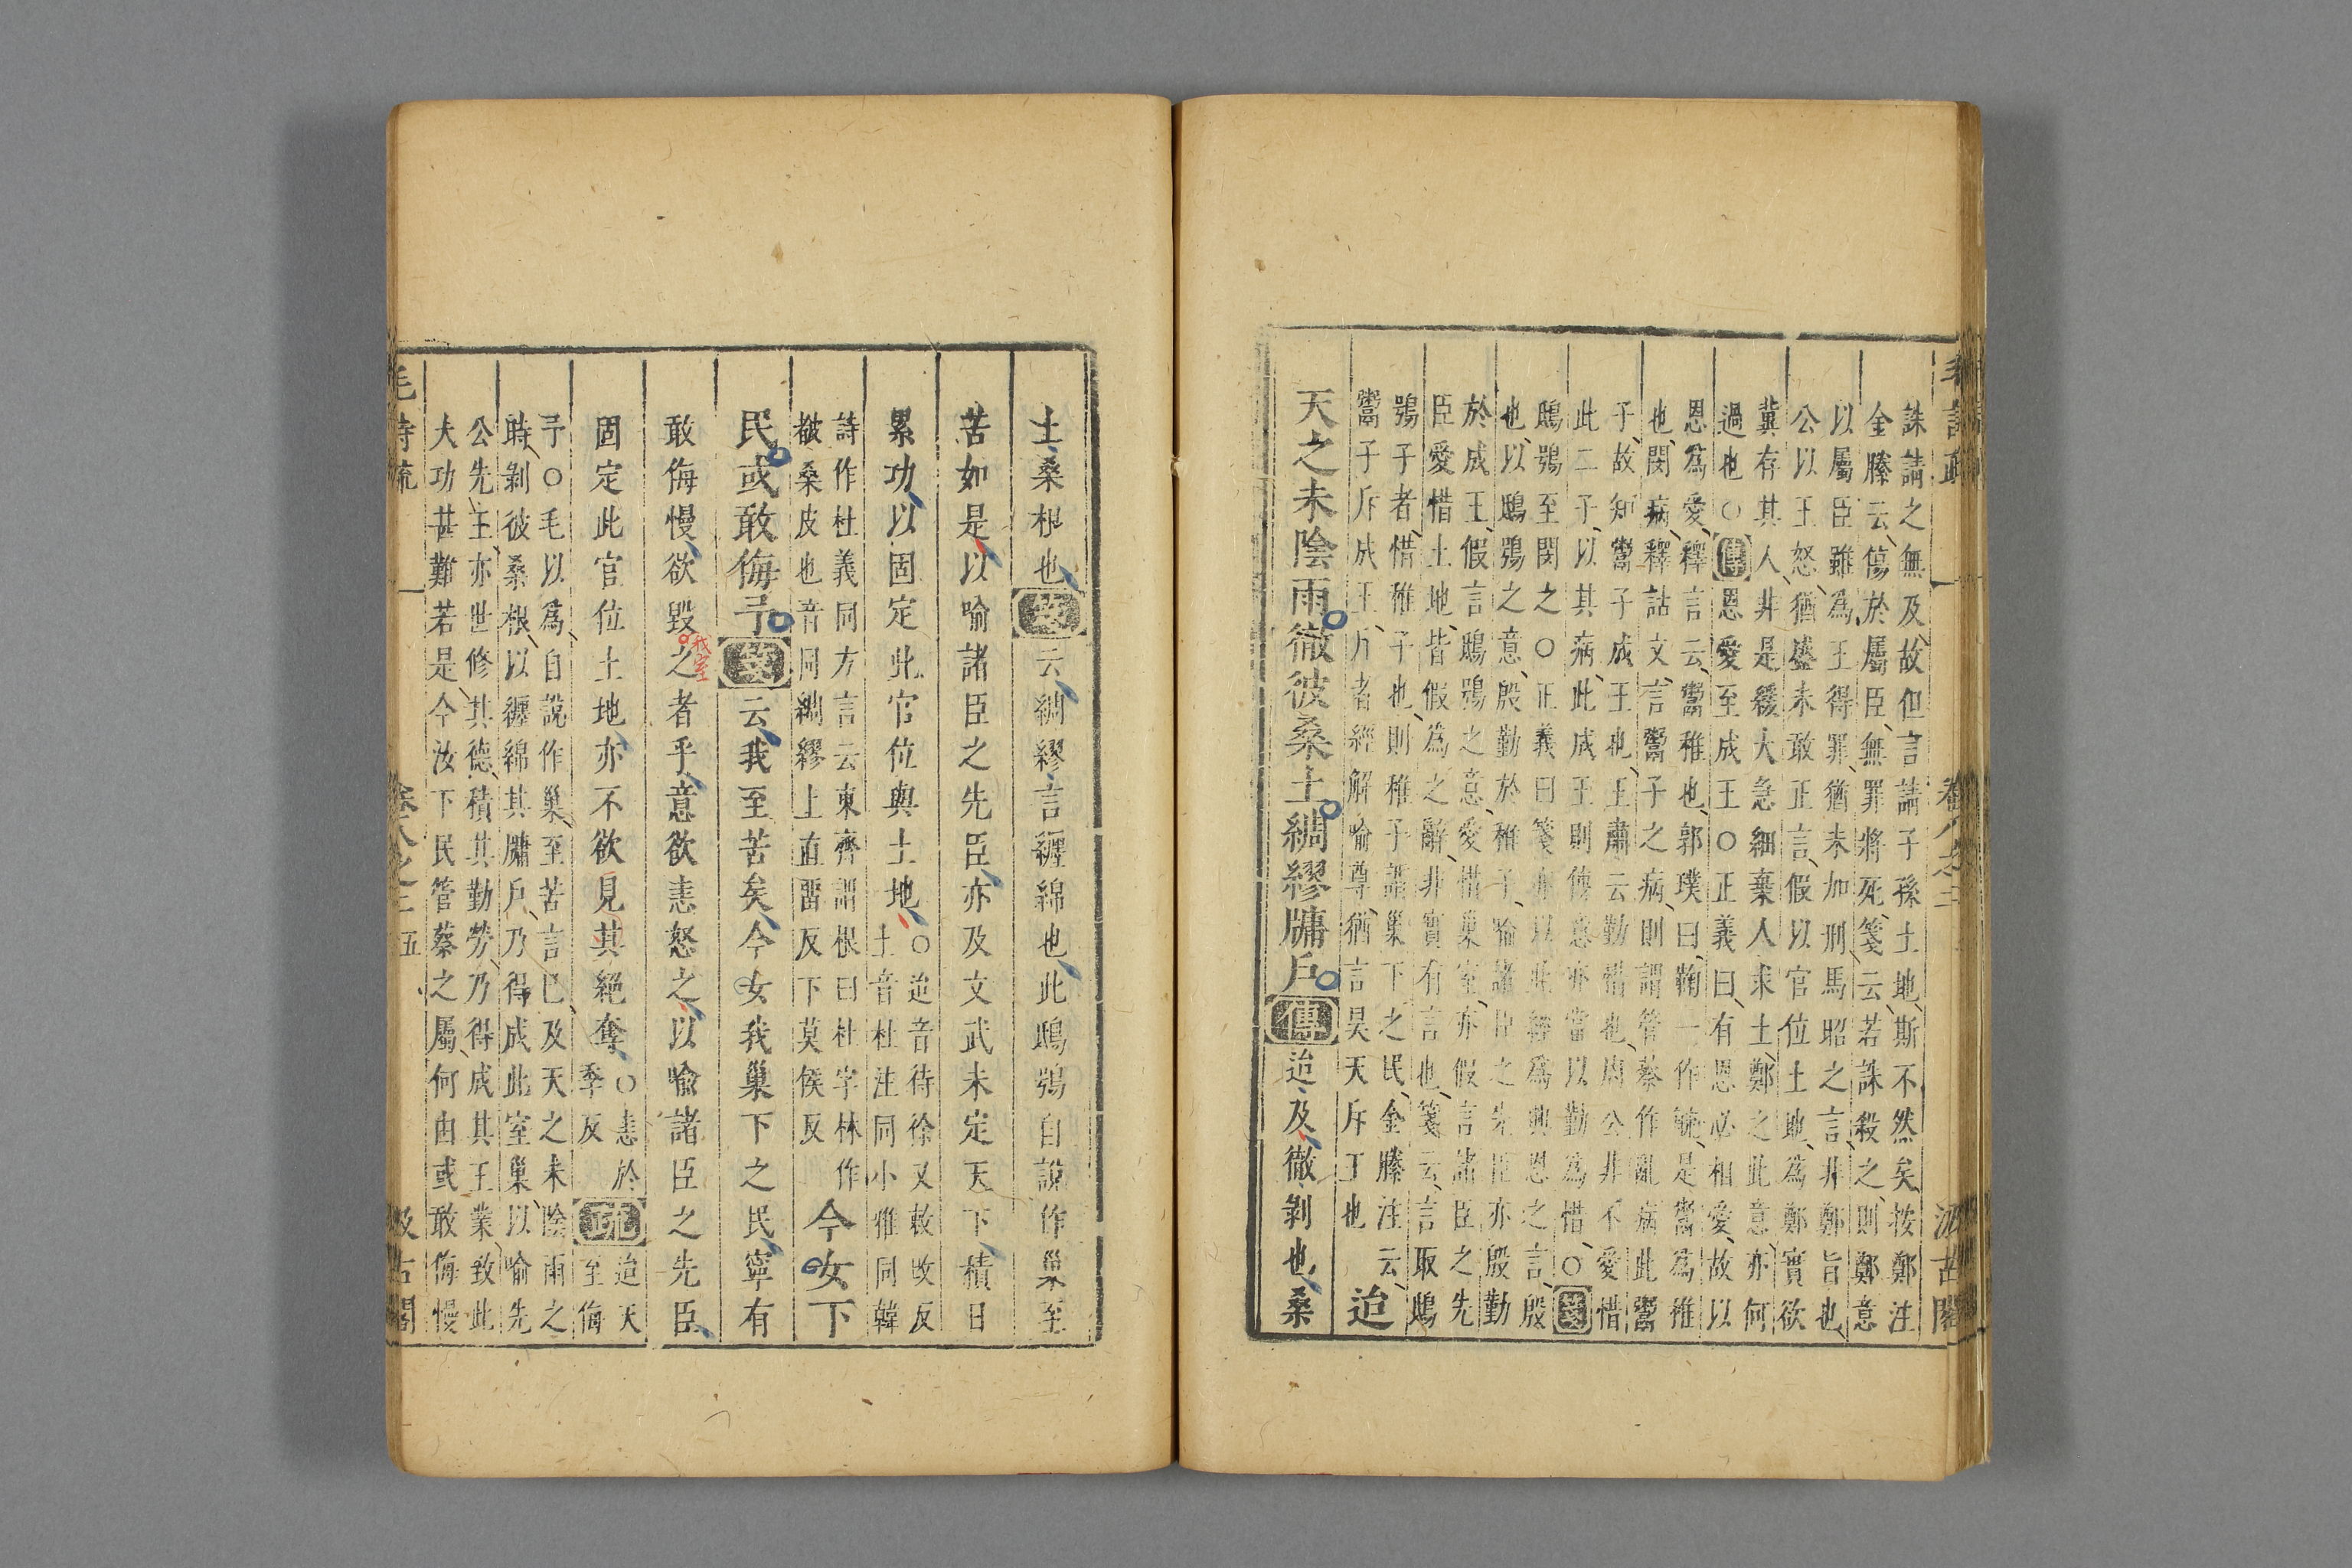 毛詩疏 卷八之二 汲古閣
誅請之無及故但言請子孫土地斯不然矣按鄭注
金縢云傷於屬臣無罪將死箋云若誅殺之則鄭意
以屬臣雖為王得罪猶未加刑馬昭之言非鄭旨也
公以王怒猶盛未敢正言假以官位土地為鄭實欲
冀存其人非是緩大急細棄人求土鄭之此意亦何
過也○傳恩愛至成王○正義曰有恩必相愛故以
恩為愛釋言云鬻稚也郭璞曰鞠一作毓是鬻為稚
也閔病釋詁文言鬻子之病則謂管蔡作亂病此鬻
子故知鬻子成王也王肅云勤惜也周公非不愛惜
此二子以其病此成王則傳意亦當以勤為惜○箋
鴟鴞至閔之○正義曰箋亦以此經為興恩之言殷
也以鴟鴞之意殷勤於稚子喻諸臣之先臣亦殷勤
於成王假言鴟鴞之意愛惜巢室亦假言諸臣之先
臣愛惜土地皆假為之辭非實有言也箋云言取鴟
鴞子者惜稚子也則稚子謂巢下之民金縢注云
鬻子斥成王斤者經解喻尊猶言昊天斥王也
迨
天之未陰雨徹彼桑土綢繆牖戶傳迨及徹剝也桑
土桑根也箋云綢繆言纏綿也此鴟鴞自說作巢至
苦如是以喻諸臣之先臣亦及文武未定天下積日
累功以固定此官位與土地○迨音待徐又敕改反
土音杜注同小雅同韓
詩作杜義同方言云東齊謂根曰杜字林作
𣞶桑皮也音同綢繆上直留反下莫侯反
今女下
民或敢侮予箋云我至苦矣今女我巢下之民寧有
敢侮慢欲毀之者乎意欲恚怒之以喻諸臣之先臣
我室
固定此官位土地亦不欲見其絕奪○恚於
季反
疏迨天
至侮
予○毛以為自說作巢至苦言巳及天之未陰雨之
時剝彼桑根以纏綿其牖戶乃得成此室巢以喻先
公先王亦世修其德積其勤勞乃得成其王業致此
大功甚難若是今汝下民管蔡之屬何由或敢侮慢
毛詩疏 卷八之二 五 汲古閣